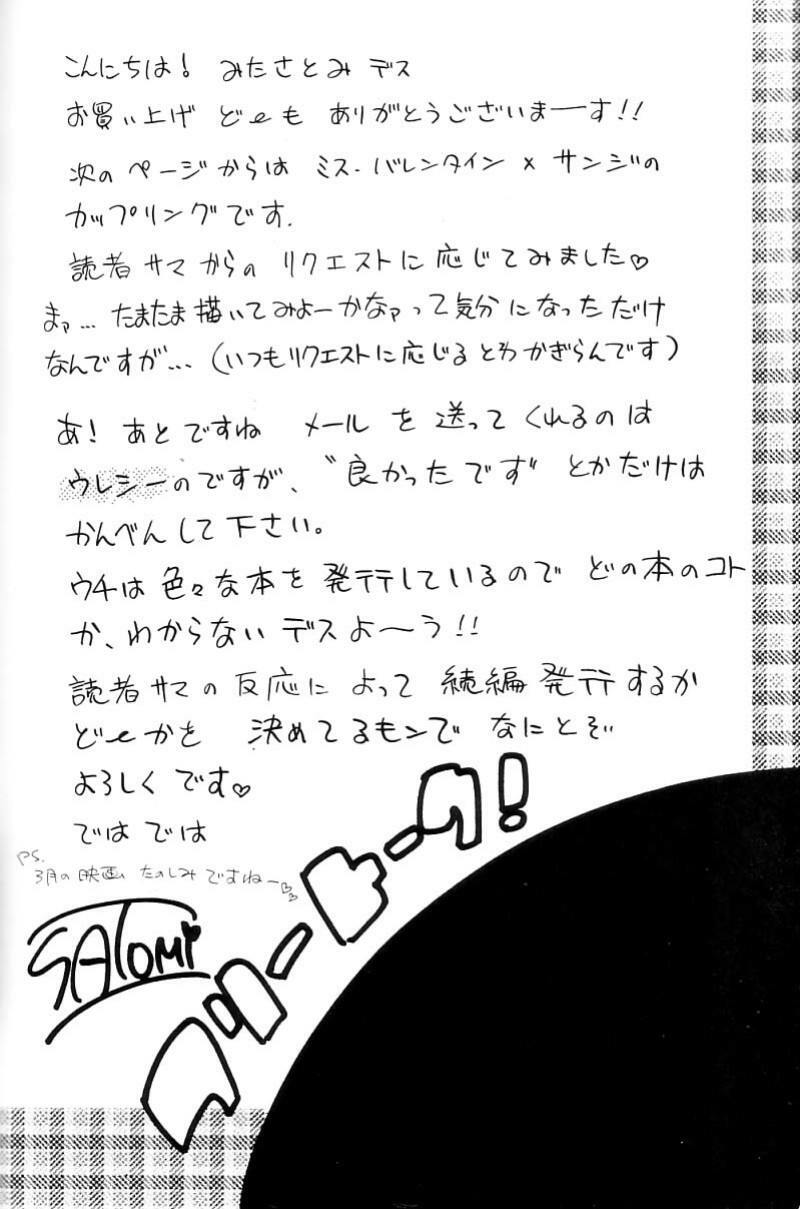 こんにちは! みたさとみ デス
お買い上げ どーも ありがとうございまーす!!
次の ページからは ミス・バレンタイン × サンジの
カップリングです.
読者サマからの リクエストに応じてみました♡
まァ… たまたま描いてみよーかなァって気分になっただけ
なんですが…(いつもリクエストに応じるとわかぎらんです)
あ! あとですね メールを送ってくれるのは
ウレシーのですが、〝良かったです〟とかだけは
かんべんして下さい。
ウチは色々な本を発行しているのでどの本のコト
か、わからないデスよ〜う!!
読者サマの反応によって 続編発行するか
どーかを 決めてるモンで なにとぞ
よろしくです♡
ではでは
PS.
3月の映画 たのしみですねー♡♡
SATOMI